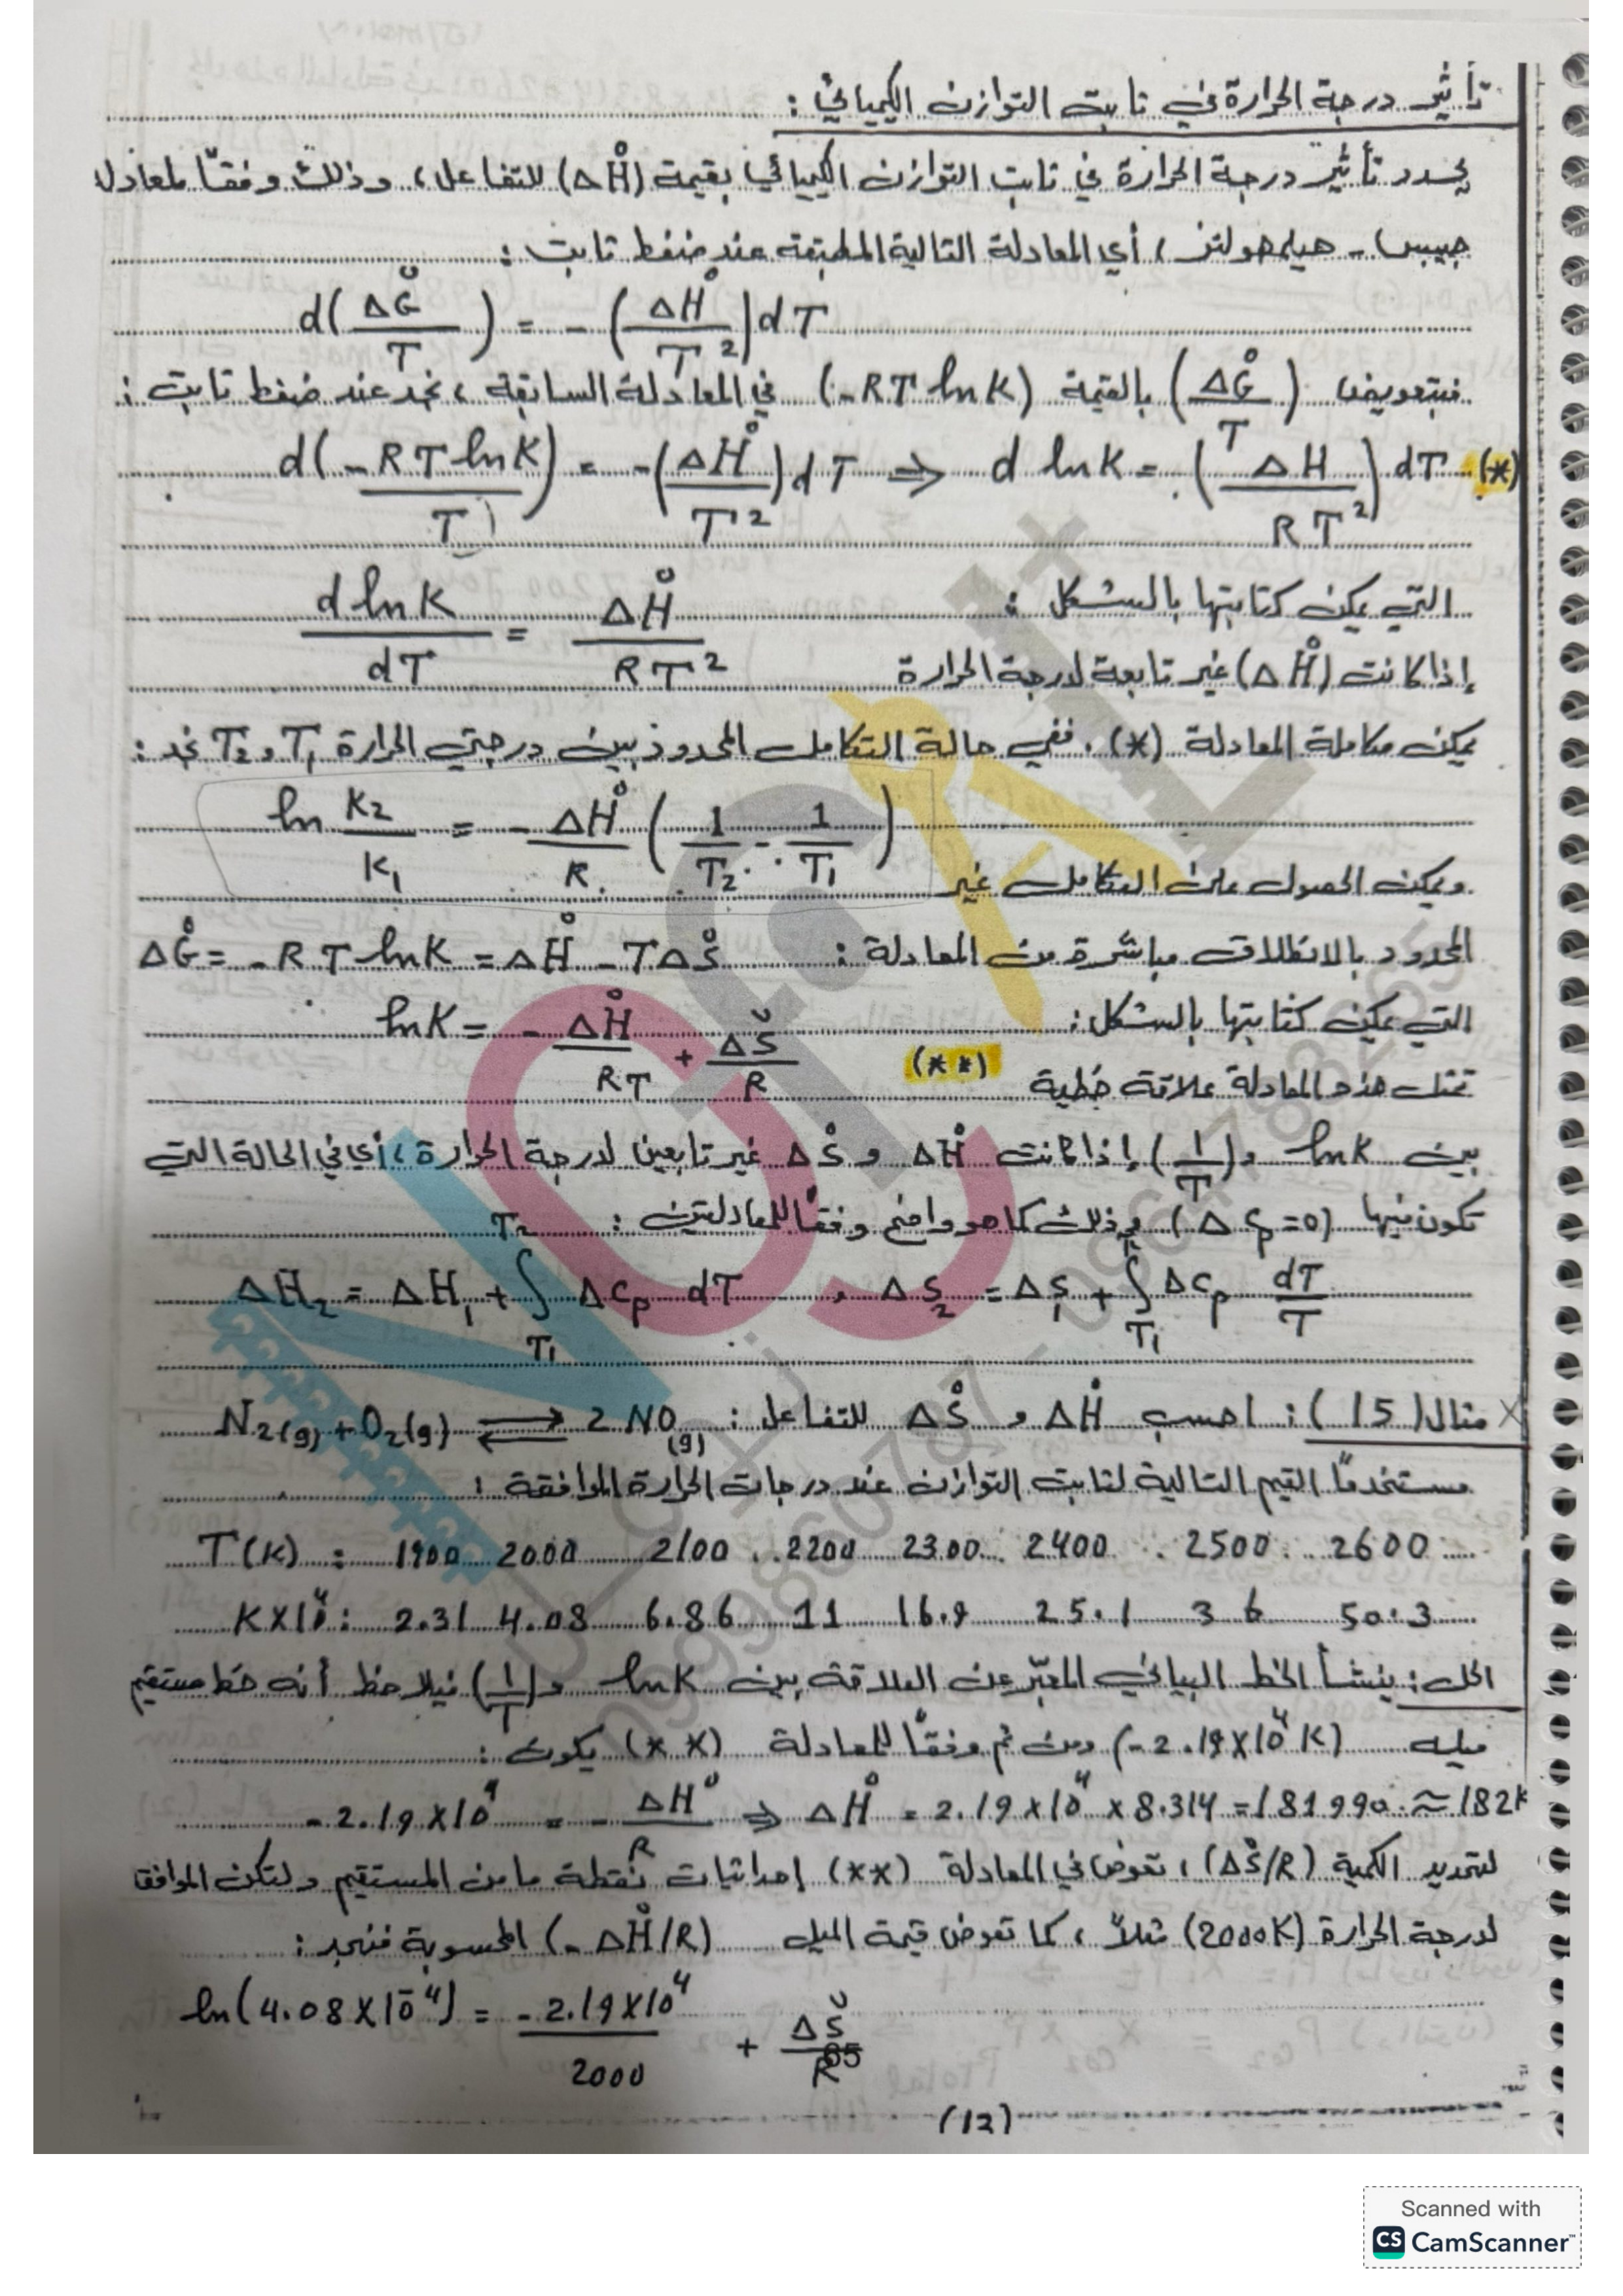 تأثير درجة الحرارة في ثابت التوازن الكيميائي :
يحدد تأثير درجة الحرارة في ثابت التوازن الكيميائي بقيمة (ΔH°) للتفاعل ، وذلك وفقًا لمعادلة
جيبس - هيلمهولتز ، أي المعادلة التالية المطبقة عند ضغط ثابت :
d(ΔG°/T) = -(ΔH°/T²)dT
فبتعويض (ΔG°/T) بالقيمة (-RT lnK) في المعادلة السابقة ، نجد عند ضغط ثابت :
d(-RT lnK/T) = -(ΔH°/T²)dT ⇒ d lnK = (ΔH/RT²)dT (*)
التي يمكن كتابتها بالشكل : d lnK/dT = ΔH°/RT²
إذا كانت (ΔH°) غير تابعة لدرجة الحرارة
يمكن مكاملة المعادلة (*) . ففي حالة التكامل المحدود بين درجتي الحرارة T₁ و T₂ نجد :
ln K₂/K₁ = - ΔH°/R (1/T₂ - 1/T₁)
ويمكن الحصول على التكامل غير
المحدود بالانطلاق مباشرة من المعادلة : ΔG° = -RT lnK = ΔH° - TΔS°
التي يمكن كتابتها بالشكل : lnK = - ΔH°/RT + ΔS°/R
تمثل هذه المعادلة علاقة خطية (**)
بين lnK و (1/T) إذا كانت ΔH° و ΔS° غير تابعين لدرجة الحرارة ، أي في الحالة التي
تكون فيها (ΔCp=0) وذلك كما هو واضح وفقًا للمعادلتين :
ΔH₂ = ΔH₁ + ∫T₁T₂ ΔCp dT , ΔS₂ = ΔS₁ + ∫T₁ ΔCp dT/T
مثال (15) : احسب ΔH° و ΔS° للتفاعل : N₂(g) + O₂(g) ⇌ 2 NO(g)
مستخدمًا القيم التالية لثابت التوازن عند درجات الحرارة الموافقة :
T(K) : 1900 2000 2100 2200 2300 2400 2500 2600
K×10⁴ : 2.31 4.08 6.86 11 16.9 25.1 36 50.3
الحل : ينشأ الخط البياني المعبّر عن العلاقة بين lnK و (1/T) فيلاحظ أنه خط مستقيم
ميله (-2.19×10⁴ K) ومن ثم وفقًا للمعادلة (**) يكون :
-2.19×10⁴ = - ΔH°/R ⇒ ΔH° = 2.19×10⁴ × 8.314 = 181990 ≈ 182k
لتحديد الكمية (ΔS°/R) ، نعوض في المعادلة (**) إحداثيات نقطة ما من المستقيم ولتكن الموافقة
لدرجة الحرارة (2000K) مثلاً ، كما نعوض قيمة الميل (-ΔH°/R) المحسوبة فنجد :
ln(4.08×10⁻⁴) = -2.19×10⁴/2000 + ΔS°/R
65
(12)
Scanned with
CS CamScanner™